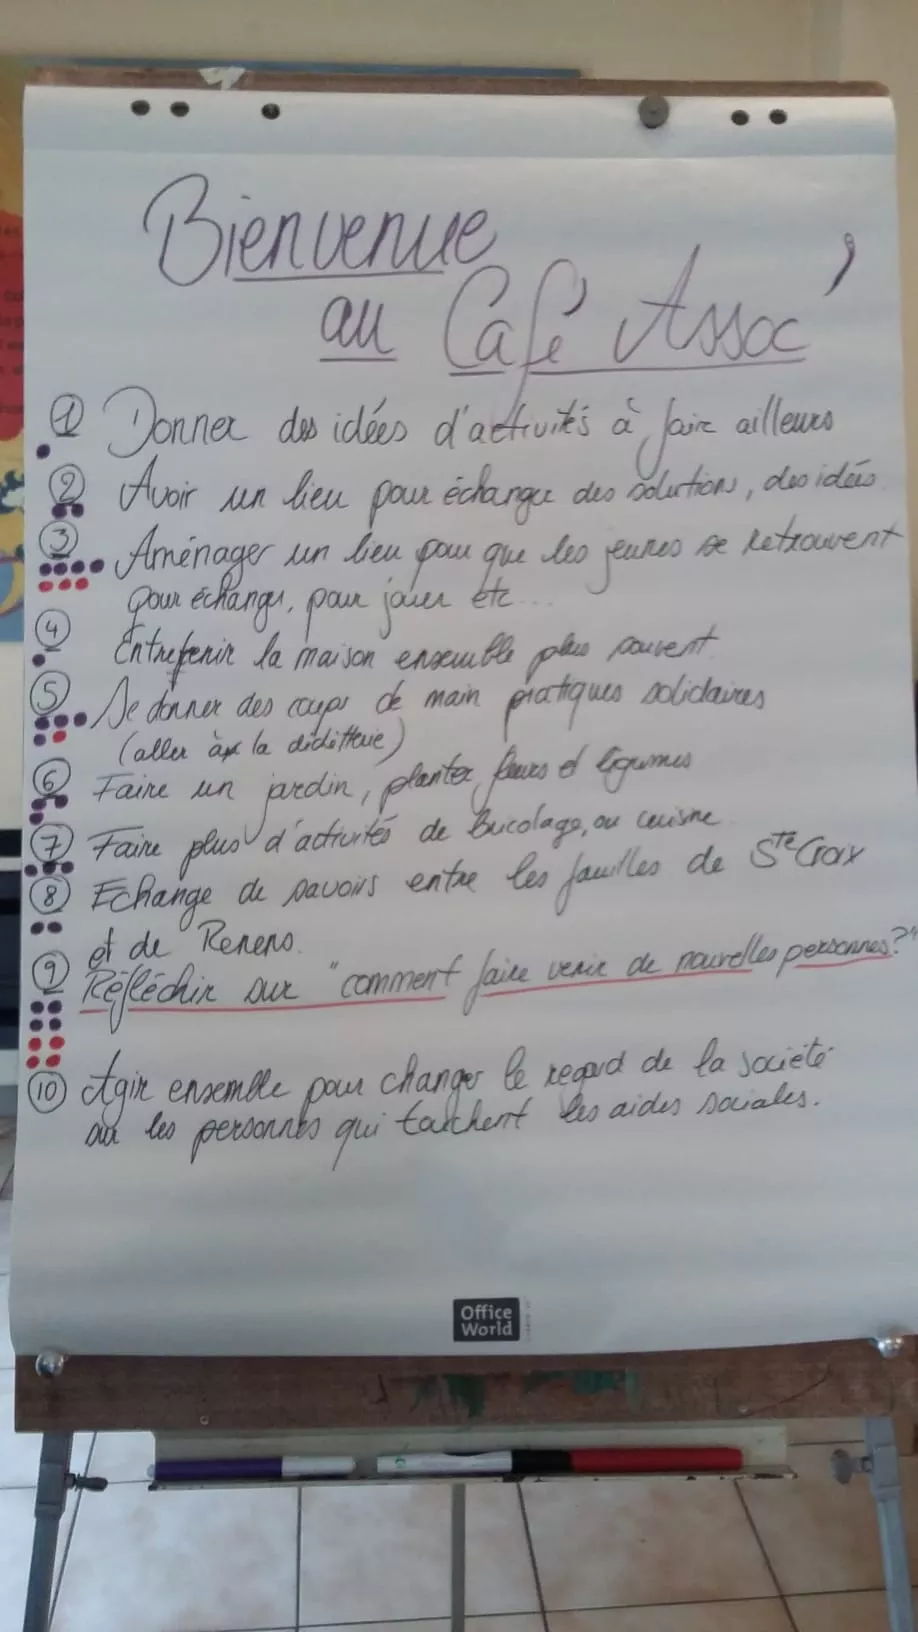 Bienvenue
au Café Assoc'
1 Donner des idées d'activités à fair ailleurs
2 Avoir un lieu pour échanger des solutions, des idées
3 Aménager un lieu pour que les jeunes se retrouvent
pour échanger, pour jouer etc...
4 Entretenir la maison ensemble plus souvent.
5 Se donner des coups de main pratiques solidaires
(aller à la décheterie)
6 Faire un jardin, planter fleurs et légumes
7 Faire plus d'activités de bricolage, ou cuisine
8 Echange de savoirs entre les familles de Ste Croix
et de Renens.
9 Réfléchir sur "comment faire venir de nouvelles personnes?"
10 Agir ensemble pour changer le regard de la société
sur les personnes qui touchent les aides sociales.
Office
World